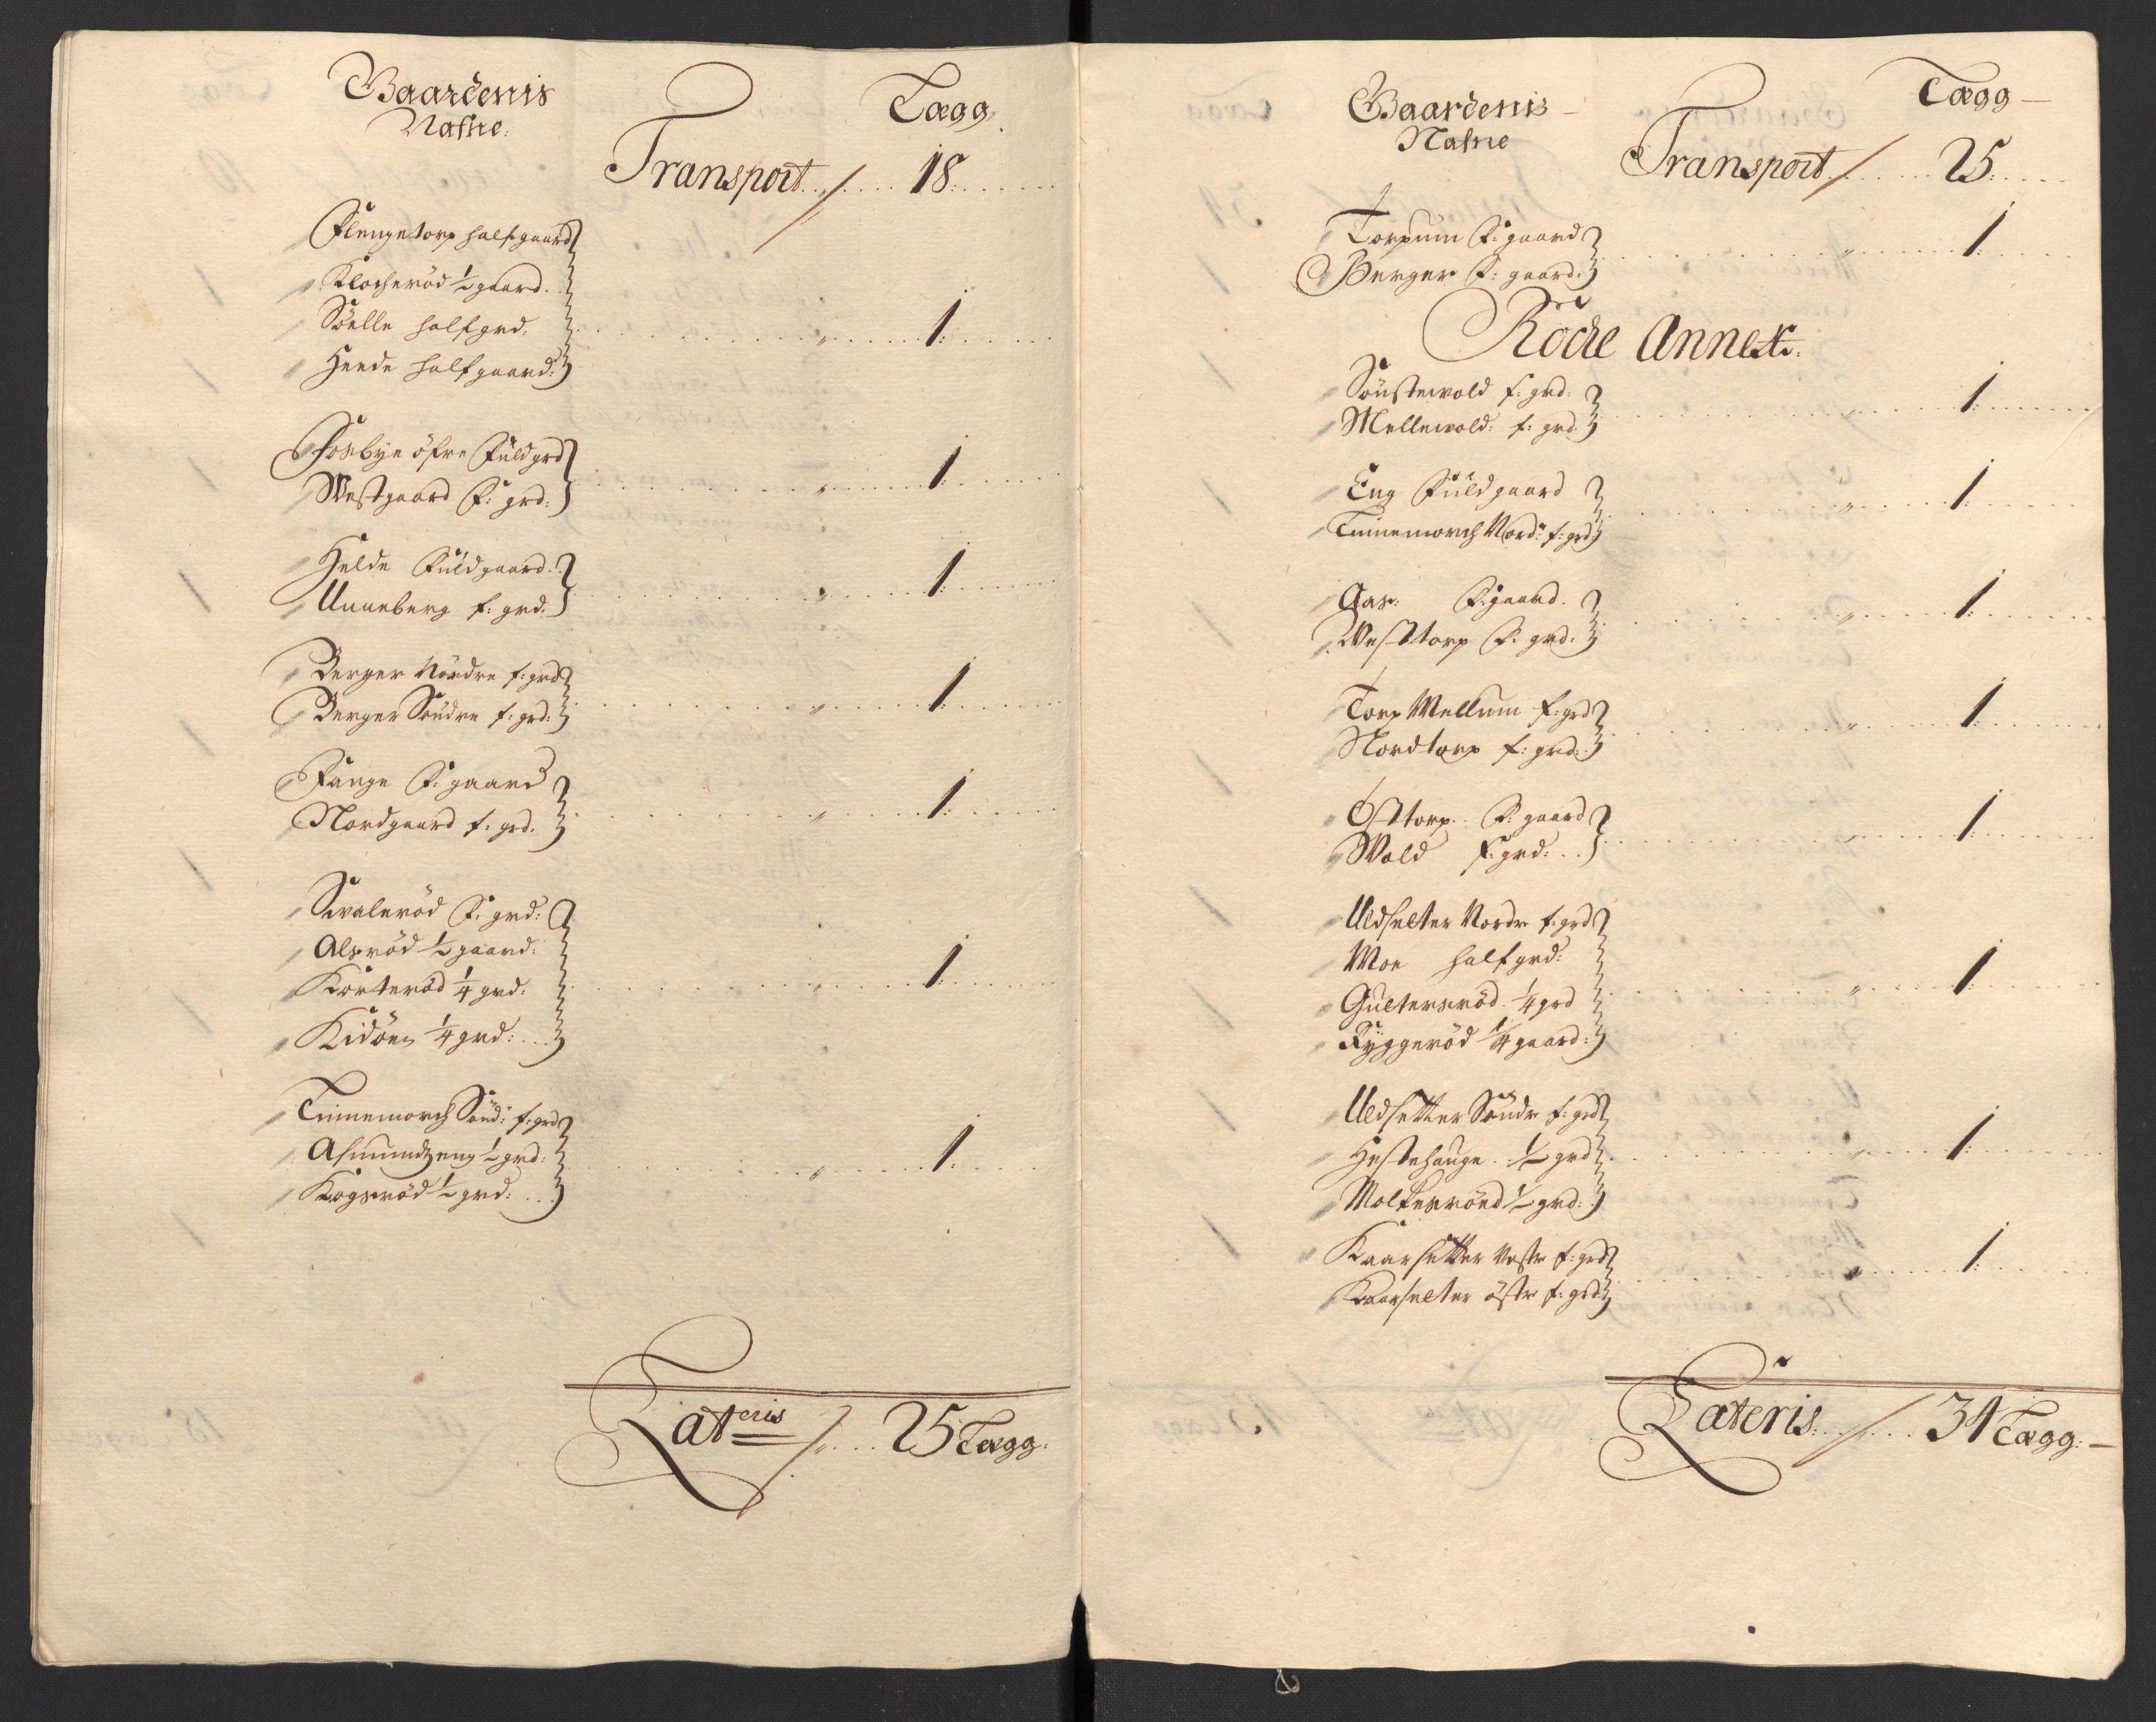 Gaardenis
Nafne.
Lægg.
Transport 18
Flengetorp halfgaard
Klocheröd ½ gaard.
Söelle half grd:
Heede halfgaard: 1
Fosbye öfre Füld grd
Westgaard F: grd: 1
Helde Füldgaard.
Unneberg f: grd. 1
Berger Nördre f: grd
Berger Söndre f: grd: 1
Fange F: gaard
Nordgaard f: grd. 1
Swaleröd F: grd:
Alsröd ½ gaard:
Korteröd ¼ grd:
Kidöen ¼ grd: 1
Tinnemorch Sönd: f: grd
Asmundzeng ½ grd:
Kogsröd ½ grd: 1
Lateris 25 Lægg:
Gaardenis
Nafne
Lægg
Transport 25
Torpum F: gaard
Berger F: gaard: 1
Röde Annex.
Sönstewold f: grd:
Mellewold: f: grd 1
Eng Füldgaard
Tinnemorch Nord: f: grd 1
Aas: F: gaard.
Westtorp F: grd: 1
Torp Mellum f: grd
Nordtorp f: grd: 1
Osttorp F: gaard
Wold f: grd: 1
Udsetter Nordr f: grd
Moe half grd:
Gultersröd ¼ grd
Ryggeröd ¼ gaard: 1
Udsetter Söndr f: grd
Hestehauge ½ grd
Molteröed ½ grd: 1
Kaarsetter Vestr f: grd
Kaarsetter östr f: grd: 1
Lateris 34 Lægg: